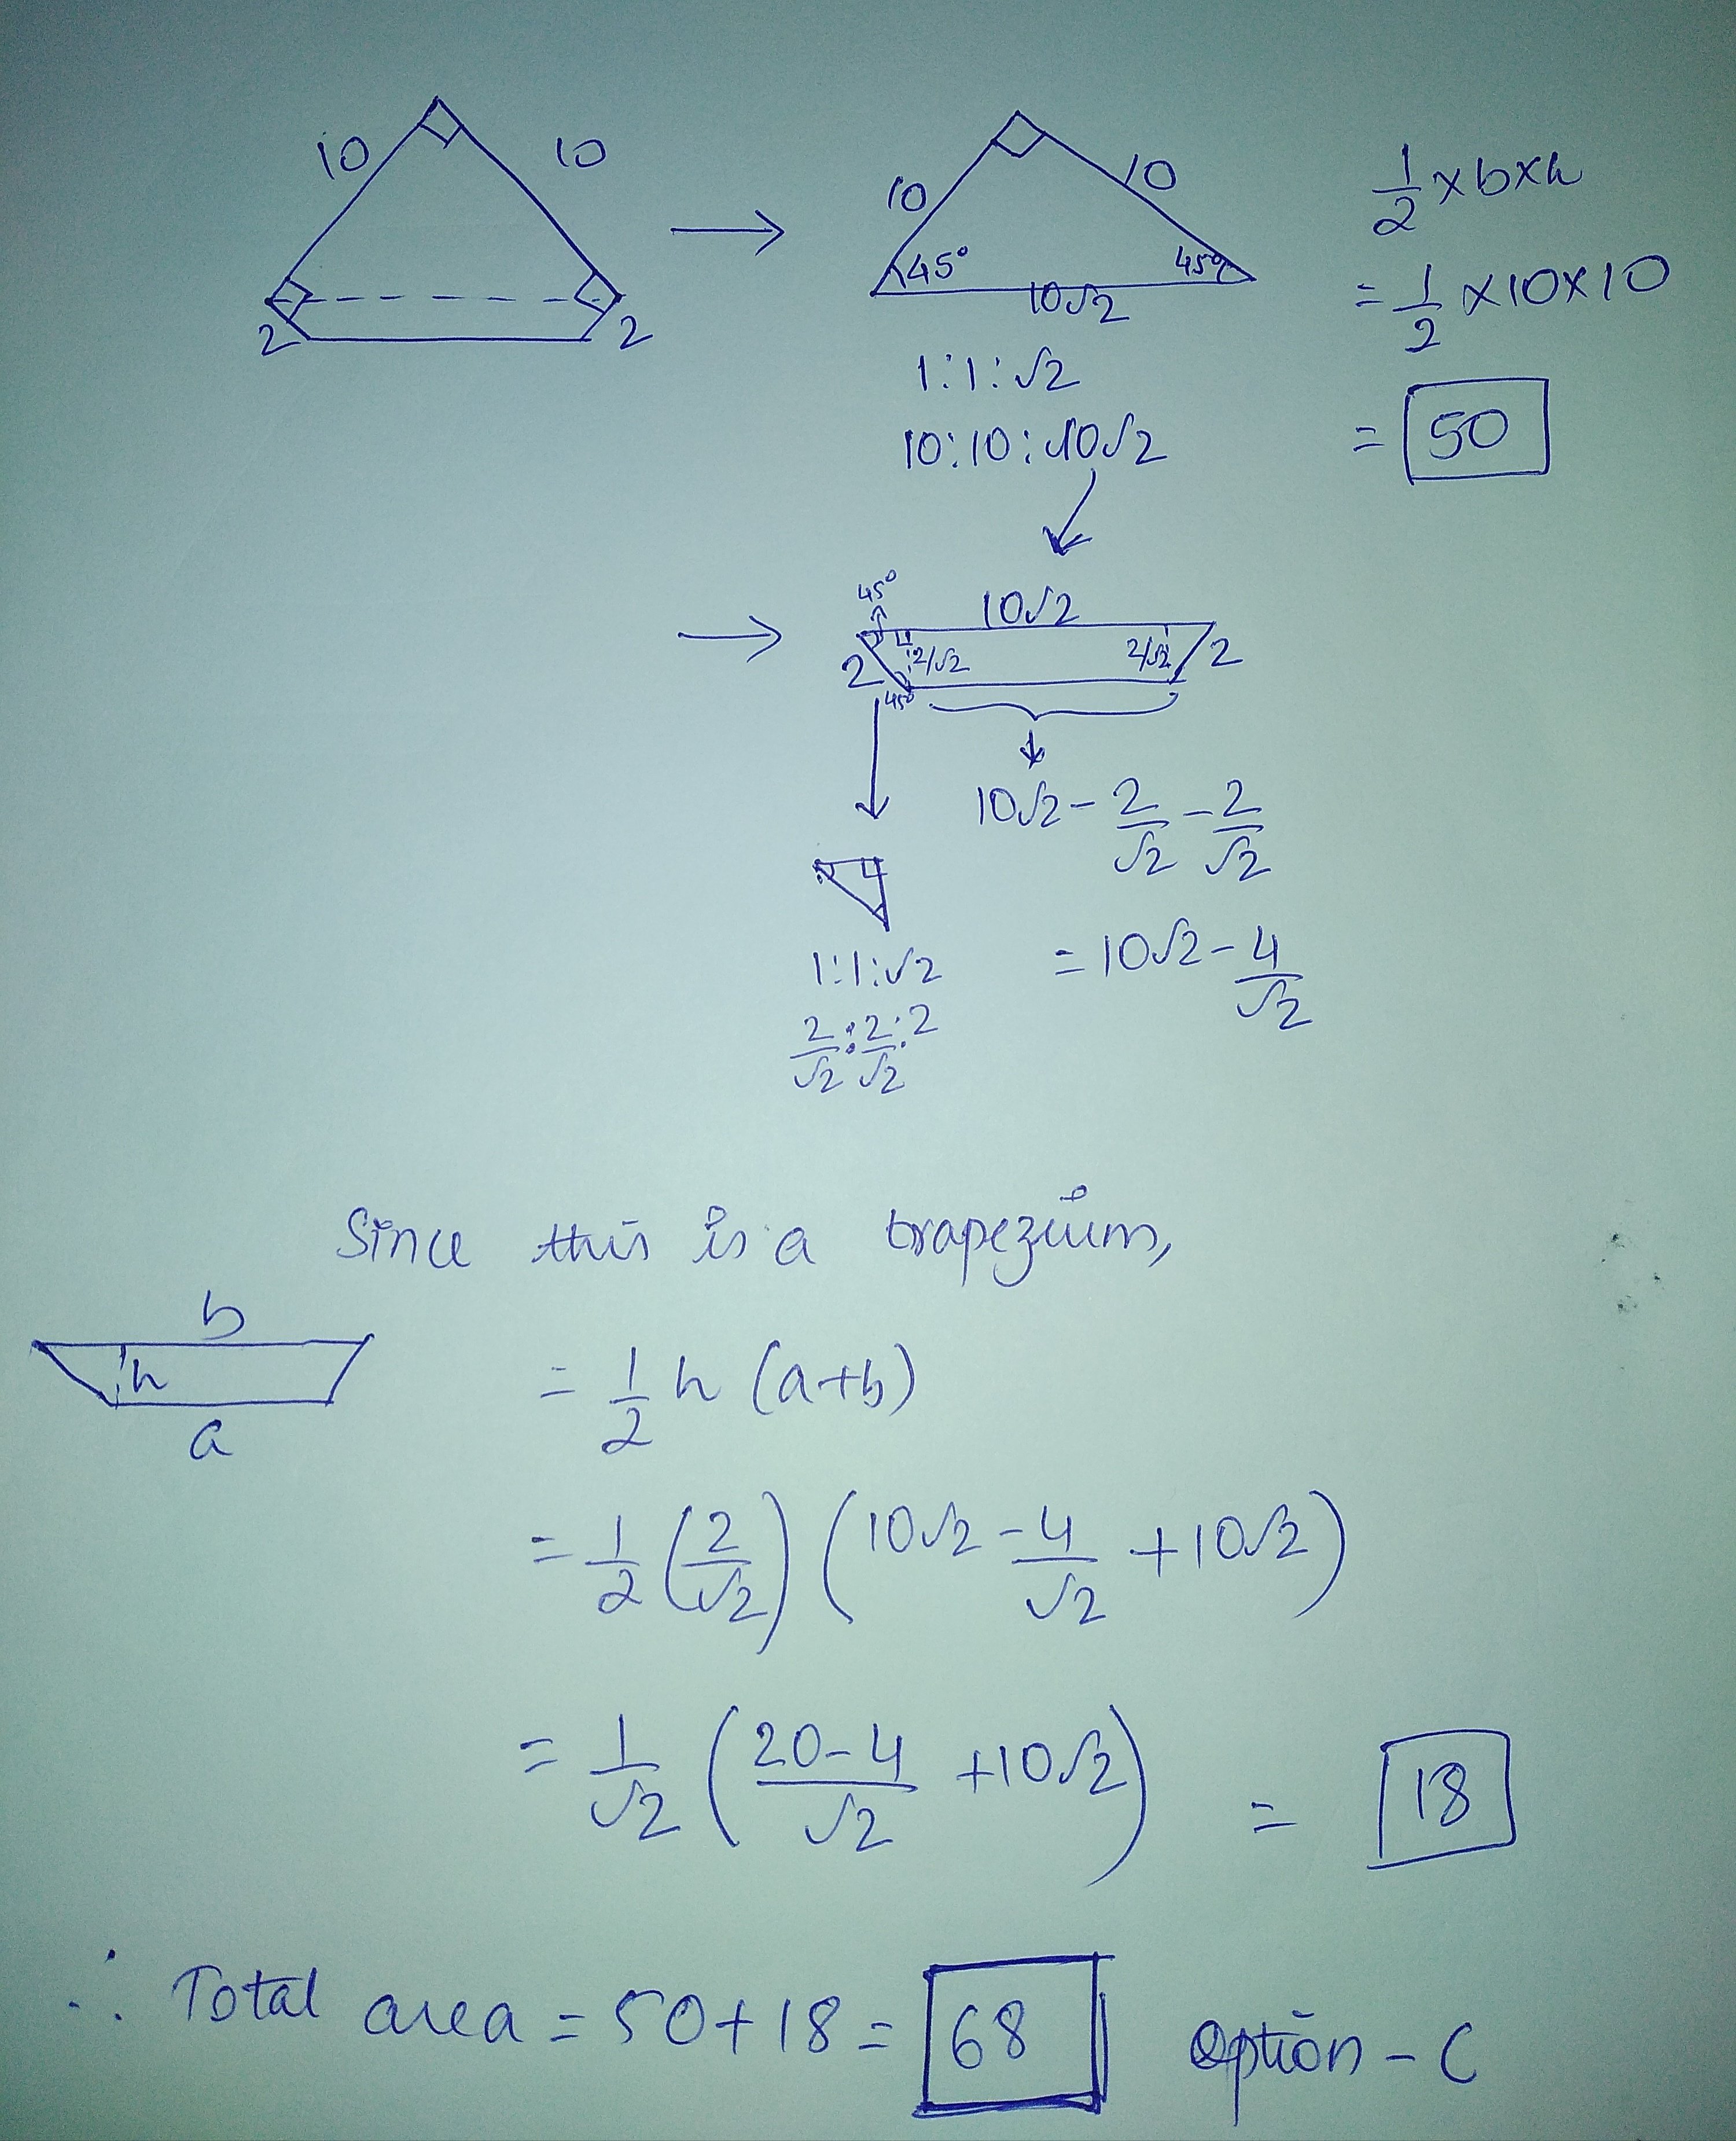 10 10
2 2
10 10
45° 45°
10√2
1:1:√2
10:10:10√2
1/2 × b × h
= 1/2 × 10 × 10
= 50
45°
10√2
2 2/√2 2/√2 2
45°
10√2 - 2/√2 - 2/√2
= 10√2 - 4/√2
1:1:√2
2/√2 : 2/√2 : 2
Since this is a trapezium,
b
h
a
= 1/2 h (a+b)
= 1/2 (2/√2) (10√2 - 4/√2 + 10√2)
= 1/√2 ((20-4)/√2 + 10√2) = 18
∴ Total area = 50 + 18 = 68 Option - C